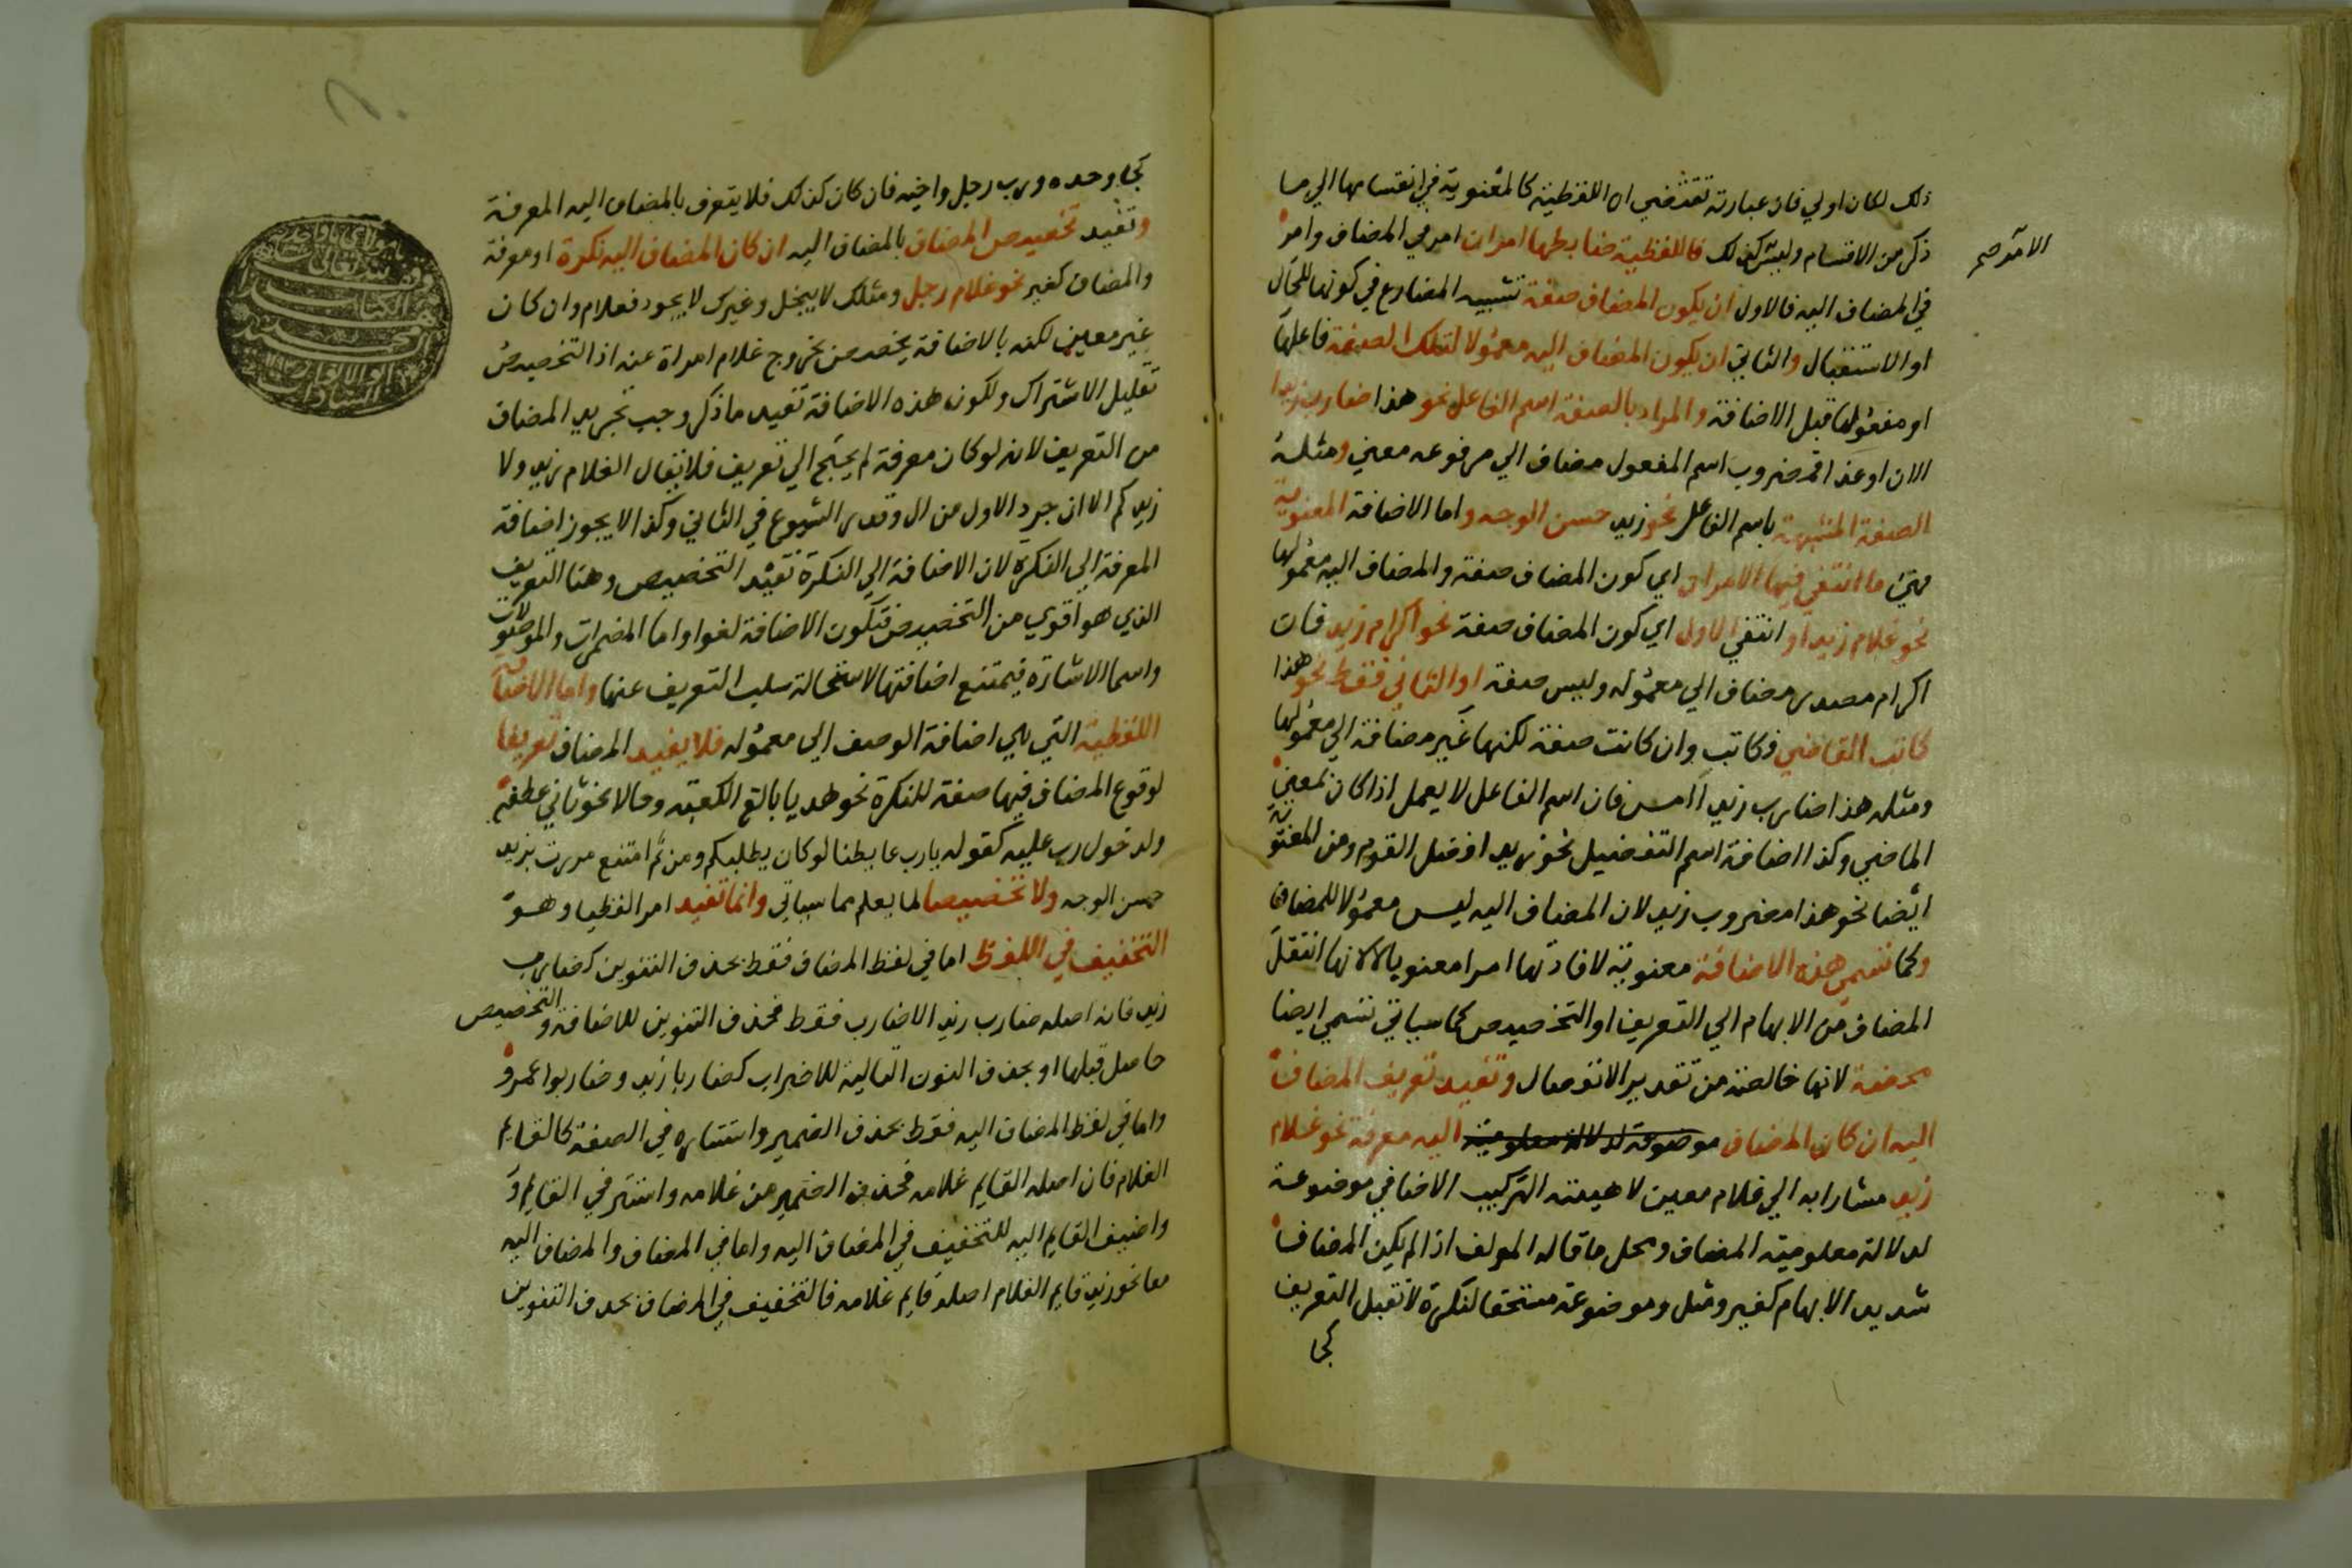 ذلك لكان اولي فان عبارته تقتضي ان اللفظية كالمعنوية في انقسامها الي ما
ذكر من الاقسام وليس كذلك فاللفظية ضابطها امران امر في المضاف وامر
الامر صح
في المضاف اليه فالاول ان يكون المضاف صفة تشبه المضارع في كونها للحال
او الاستقبال والثاني ان يكون المضاف اليه معمولا لتلك الصفة فاعلها
او مفعولها قبل الاضافة والمراد بالصفة اسم الفاعل نحو هذا ضارب زيدا
الان او غدا مضروب اسم المفعول مضاف الي مرفوعه معني ومثله
الصفة المشبهة باسم الفاعل نحو زيد حسن الوجه واما الاضافة المعنوية
فهي ما انتفي فيها الامران اي كون المضاف صفة والمضاف اليه معمولها
نحو غلام زيد او انتفي الاول اي كون المضاف صفة نحو اكرام زيد فان
اكرام مصدر مضاف الي معموله وليس صفة او الثاني فقط نحو هذا
كاتب القاضي فكاتب وان كانت صفة لكنها غير مضافة الي معمولها
ومثله هذا ضارب زيد امس فان اسم الفاعل لا يعمل اذا كان بمعني
الماضي وكذا اضافة اسم التفضيل نحو زيد افضل القوم ومن المعنوية
ايضا نحو هذا مضروب زيد لان المضاف اليه ليس معمولا للمضاف
وكما تسمي هذه الاضافة معنوية لافادتها امرا معنويا لانها انتقل
المضاف من الابهام الي التعريف او التخصيص كما سياتي تسمي ايضا
محضة لانها خالصة من تقدير الانفصال وتفيد تعريف المضاف
اليه ان كان المضاف موضوعة لدلالة معلومية اليه معرفة نحو غلام
زيد مشارا به الي غلام معين لا هيئته التركيب الاضافي موضوعة
لدلالة معلومية المضاف ومحل ما قاله المولف اذا لم يكن المضاف
شديد الابهام كغير ومثل وموضوعة مستحقا لنكرة لا تقبل التعريف
كجا
كجا وحده ورب رجل واخيه فان كان كذلك فلا يتعرف بالمضاف اليه المعرفة
وتفيد تخصيص المضاف بالمضاف اليه ان كان المضاف اليه نكرة او معرفة
والمضاف كغير نحو غلام رجل ومثلك لا يبخل وغيرك لا يجود فغلام وان كان
غير معين لكنه بالاضافة تخصص بخروج غلام امراة عنه اذ التخصيص
تقليل الاشتراك ولكون هذه الاضافة تفيد ما ذكر وجب تجريد المضاف
من التعريف لانه لو كان معرفة لم يحتج الي تعريف فلا يقال الغلام زيد ولا
زيدكم الا ان جرد الاول من ال وقدر الشيوع في الثاني وكذا لا يجوز اضافة
المعرفة الي النكرة لان الاضافة الي النكرة تفيد التخصيص وهنا التعريف
الذي هو اقوي من التخصيص فتكون الاضافة لغوا واما المضمرات والموصولات
واسما الاشارة فيمتنع اضافتها لاستحالة سلب التعريف عنها واما الاضافة
اللفظية التي هي اضافة الوصف الي معموله فلا يفيد المضاف تعريفا
لوقوع المضاف فيها صفة للنكرة نحو هديا بالغ الكعبة وحالا نحو ثاني عطفه
ولدخول رب عليه كقوله يارب غابطنا لو كان يطلبكم ومن ثم امتنع مررت بزيد
حسن الوجه ولا تخصيصا لما يعلم مما سياتي وانما تفيد امرا لفظيا وهو
التخفيف في اللفظ اما في لفظ المضاف فقط بحذف التنوين كضارب
زيد فان اصله ضارب زيد الاضارب فقط فحذف التنوين للاضافة والتخصيص
حاصل قبلها او بحذف النون التالية للاعراب كضاربا زيد وضاربوا عمرو
واما في لفظ المضاف اليه فقط بحذف الضمير واستتاره في الصفة كالقايم
الغلام فان اصله القايم غلامه فحذف الضمير من غلامه واستتر في القايم و
واضيف القايم اليه للتخفيف في المضاف اليه واما في المضاف والمضاف اليه
معا نحو زيد قايم الغلام اصله قايم غلامه فالتخفيف في المضاف بحذف التنوين